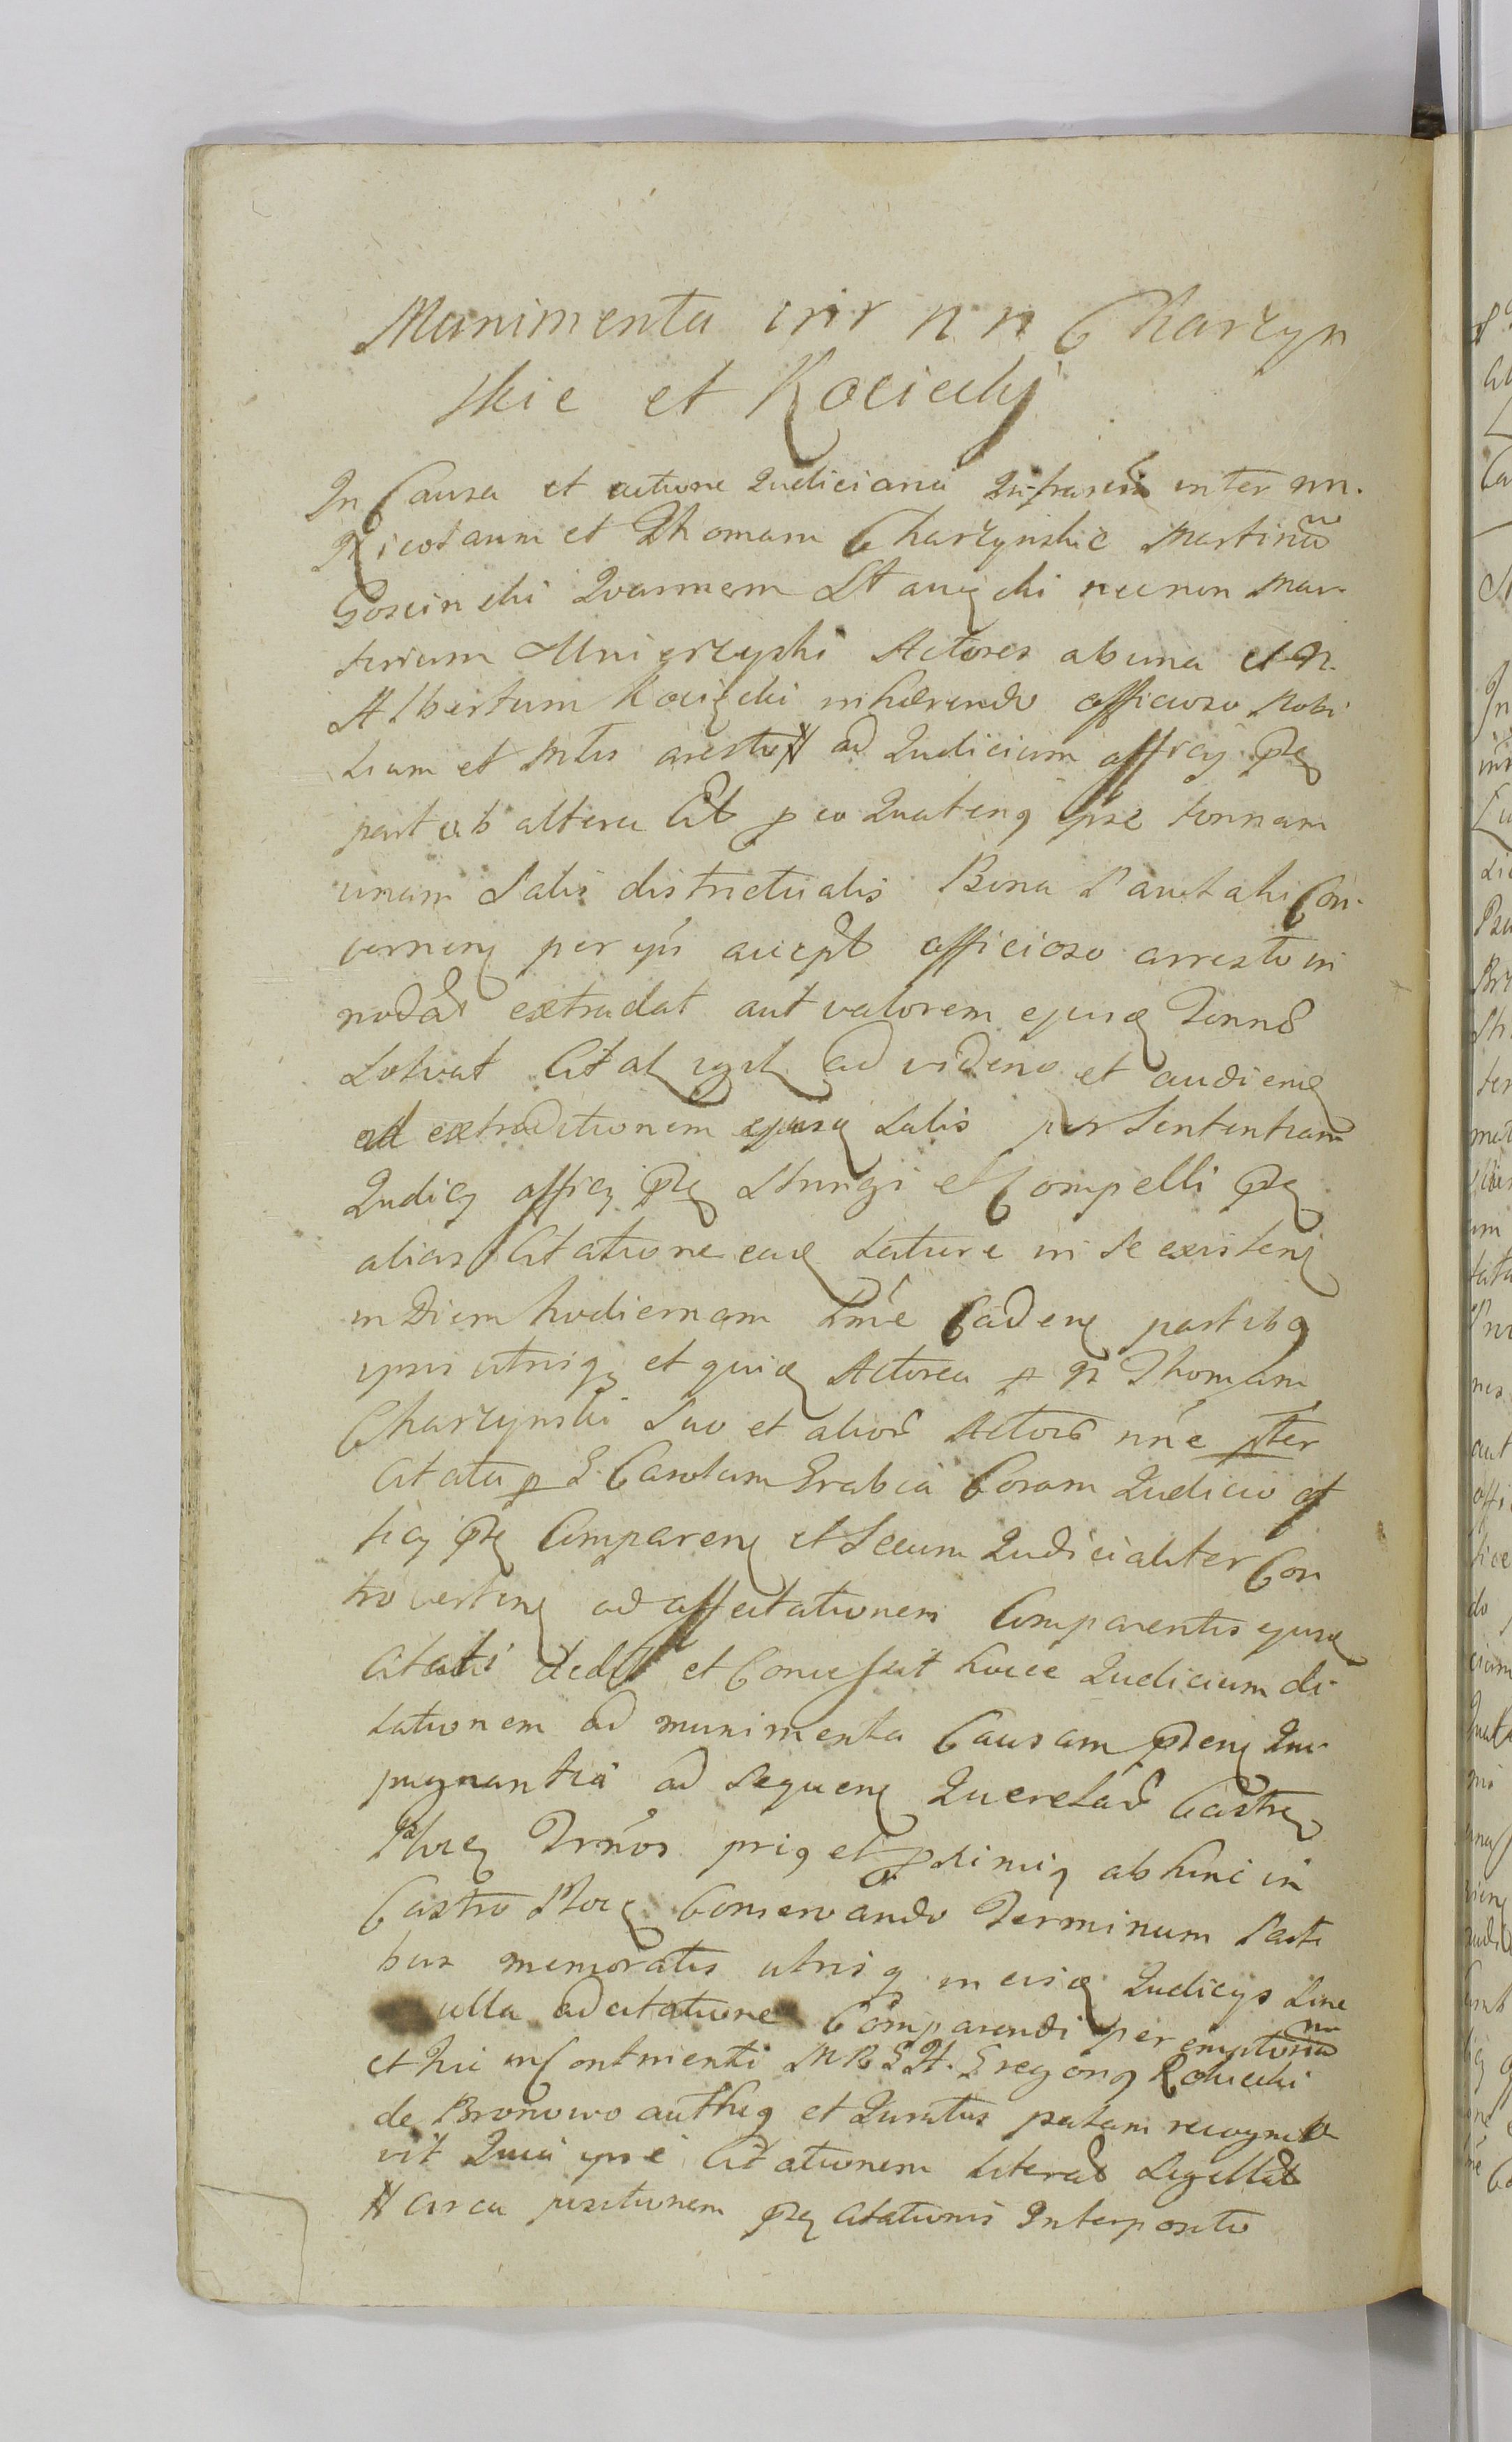 Munimenta intr n n Charzyn
skie et Kocięcki
In Causa et actione Judiciaria infrascr inter nn.
Nicolaum et Thomam Charzynskie Martinum
Goscinski Joannem Stanięcki necnon Mar-
tinum Mnierzyski Actores ab una et N.
Albertum Kocięcki inhærendo officioso Nobi
lium et Mtis aresto # ad Judicium officÿ
part ab altera Cit p eo Quatenq ipse tonnam
unam Salis districtualis Bona Pauctahi Con-
cernenę per ipś accept officioso arresto in
nodat extradat aut valorem ejusđ Tonnæ
Solvat Citat ad videnđ et audienđ
ad extraditionem ejusđ Salis per Sententiam
Judicÿ officÿ Stringi et Compelli
alias Citatione eađ Latius in se existenę
in Diem hodiernam Caden partibq
ipsis utrisq et quiđ Actorea p N Thomam
Charzynski Suo et alior Actor nñe
Citata p G Carolum Grabia Coram Judicio of
ficÿ Comparenę et Secum Judicialiter Con
trovertenę ad affectationem Comparentis ejusđ
Citati dedit et Concessit huicce Judicium di-
lationem ad munimenta Causam Im-
pugnantia ad Sequenę Querelar Castren
Plocę Trmos priq et pximiq ab hinc in
Castro Plocę Conservando Terminum Parti
bus memoratis utrisq in eisđ Judicÿs Sine
ulla adcitatione Comparendi peremptorium
et hic in Continenti M R G H. Gregorię
de Bronowo authiq et Juratus palam recogno
vit Quia ipse Citationem literat Sigillat
# circa positionem Citationis Interposito